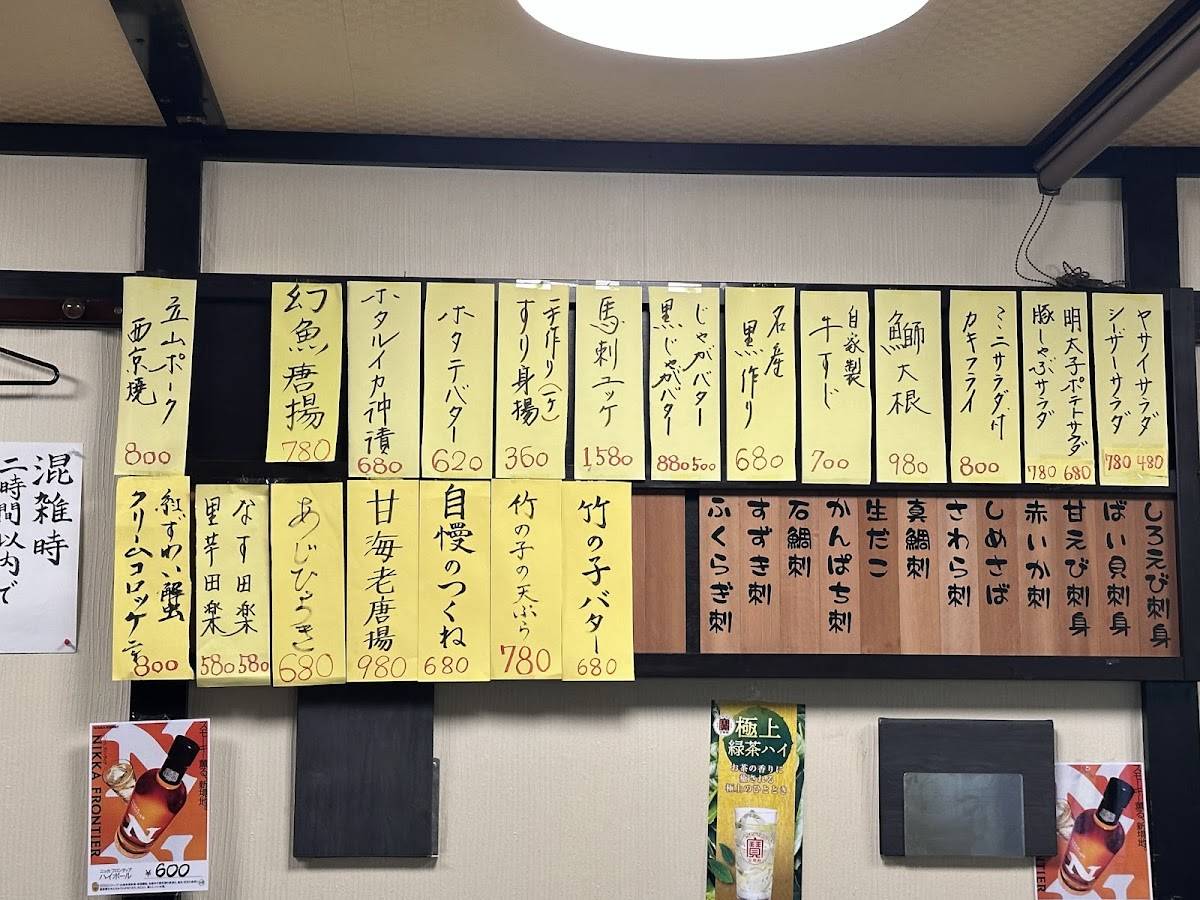 ヤサイサラダ
シーザーサラダ
780 480
明太子ポテトサラダ
豚しゃぶサラダ
780 680
ミニサラダ付
カキフライ
800
鰤大根
980
自家製
牛すじ
700
名産
黒作り
680
じゃがバター
黒じゃがバター
880 500
馬刺ユッケ
1580
手作り(一ヶ)
すり身揚
360
ホタテバター
620
ホタルイカ沖漬
680
幻魚唐揚
780
立山ポーク
西京焼
800
しろえび刺身
ばい貝刺身
甘えび刺身
赤いか刺
しめさば
さわら刺
真鯛刺
生だこ
かんぱち刺
石鯛刺
すずき刺
ふくらぎ刺
竹の子バター
680
竹の子の天ぷら
780
自慢のつくね
680
甘海老唐揚
980
あじひらき
680
なす田楽
里芋田楽
580 580
紅ずわい蟹
クリームコロッケ
800
混雑時
二時間以内で
スモーキー薫る、新境地。
NIKKA FRONTIER
N
ニッカ フロンティア
ハイボール
¥600
寶
極上
緑茶ハイ
お茶の香りに
癒される
極上のひととき
寶
スモーキー薫る、新境地。
NIKKA FRONTIER
N